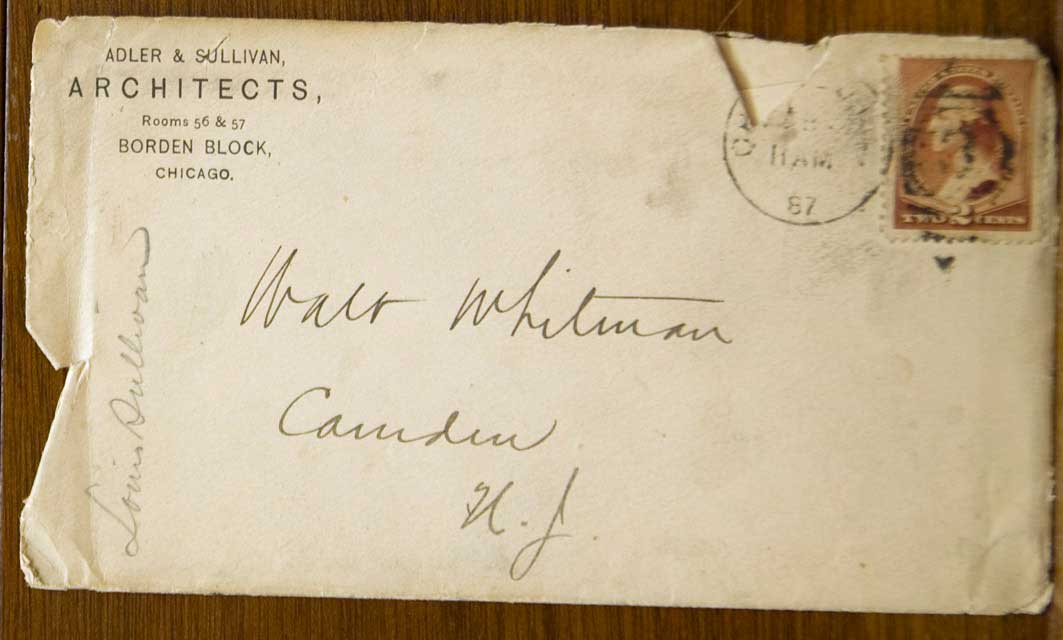 ADLER & SULLIVAN,
ARCHITECTS,
Rooms 56 & 57
BORDEN BLOCK,
CHICAGO.
11 AM
87
TWO 2 CENTS
Walt Whitman
Camden
N. J.
Louis Sullivan